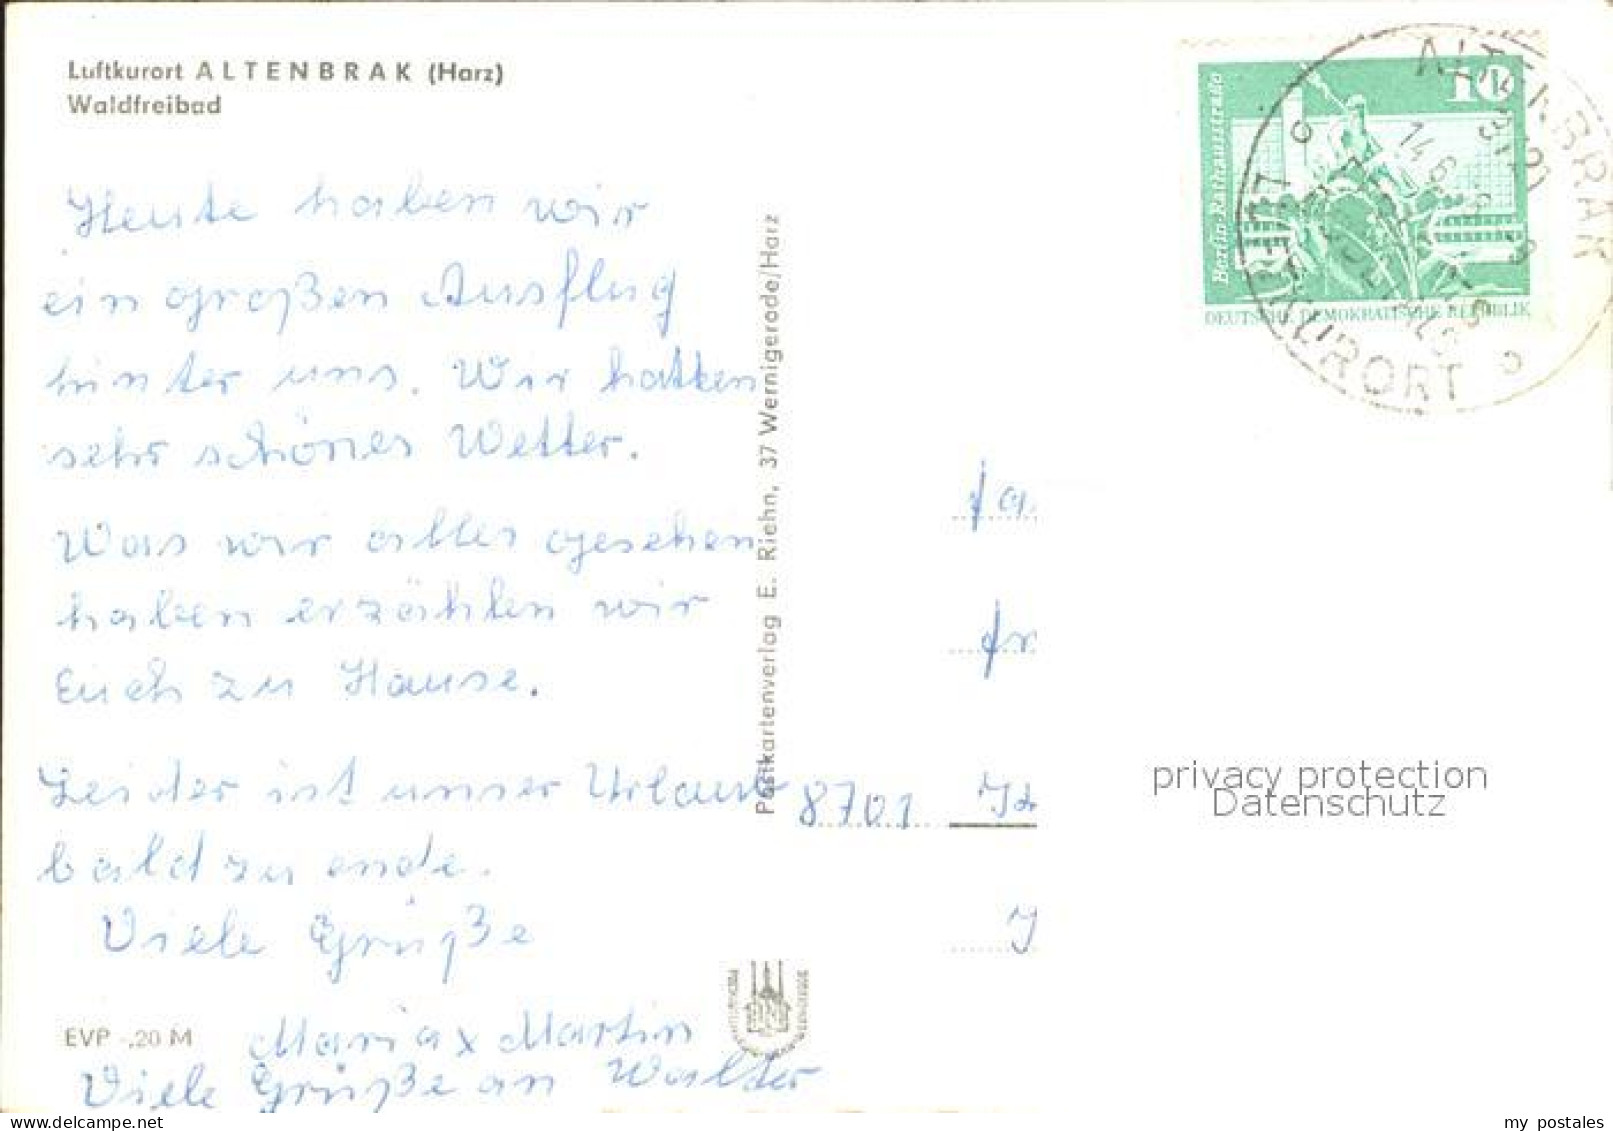 Luftkurort ALTENBRAK (Harz)
Waldfreibad
Heute haben wir
ein großen Ausflug
hinter uns. Wir hatten
sehr schönes Wetter.
Was wir alles gesehen
haben erzählen wir
Euch zu Hause.
Leider ist unser Urlaub
bald zu ende.
Viele Grüße
Maria x Martin
Viele Grüße an Walter
EVP -,20 M
Postkartenverlag E. Riehn, 37 Wernigerode/Harz
10
Berlin-Rathausstraße
DEUTSCHE DEMOKRATISCHE REPUBLIK
ALTENBRAK
3721
14.6.
KURORT
Fa
Fr
8701
privacy protection
Datenschutz
my postales